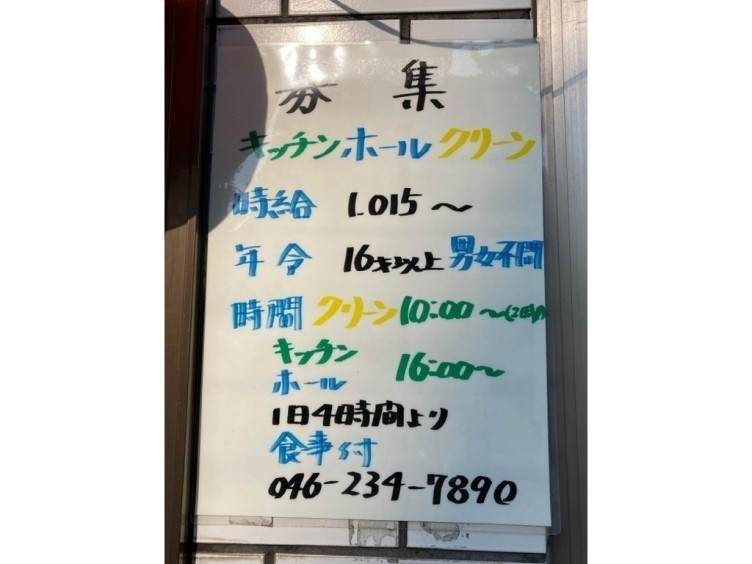 募集
キッチン ホール クリーン
時給 1.015～
年令 16才以上 男女不問
時間 クリーン 10:00～
キッチン 16:00～
ホール
1日4時間より
食事付
046-234-7890